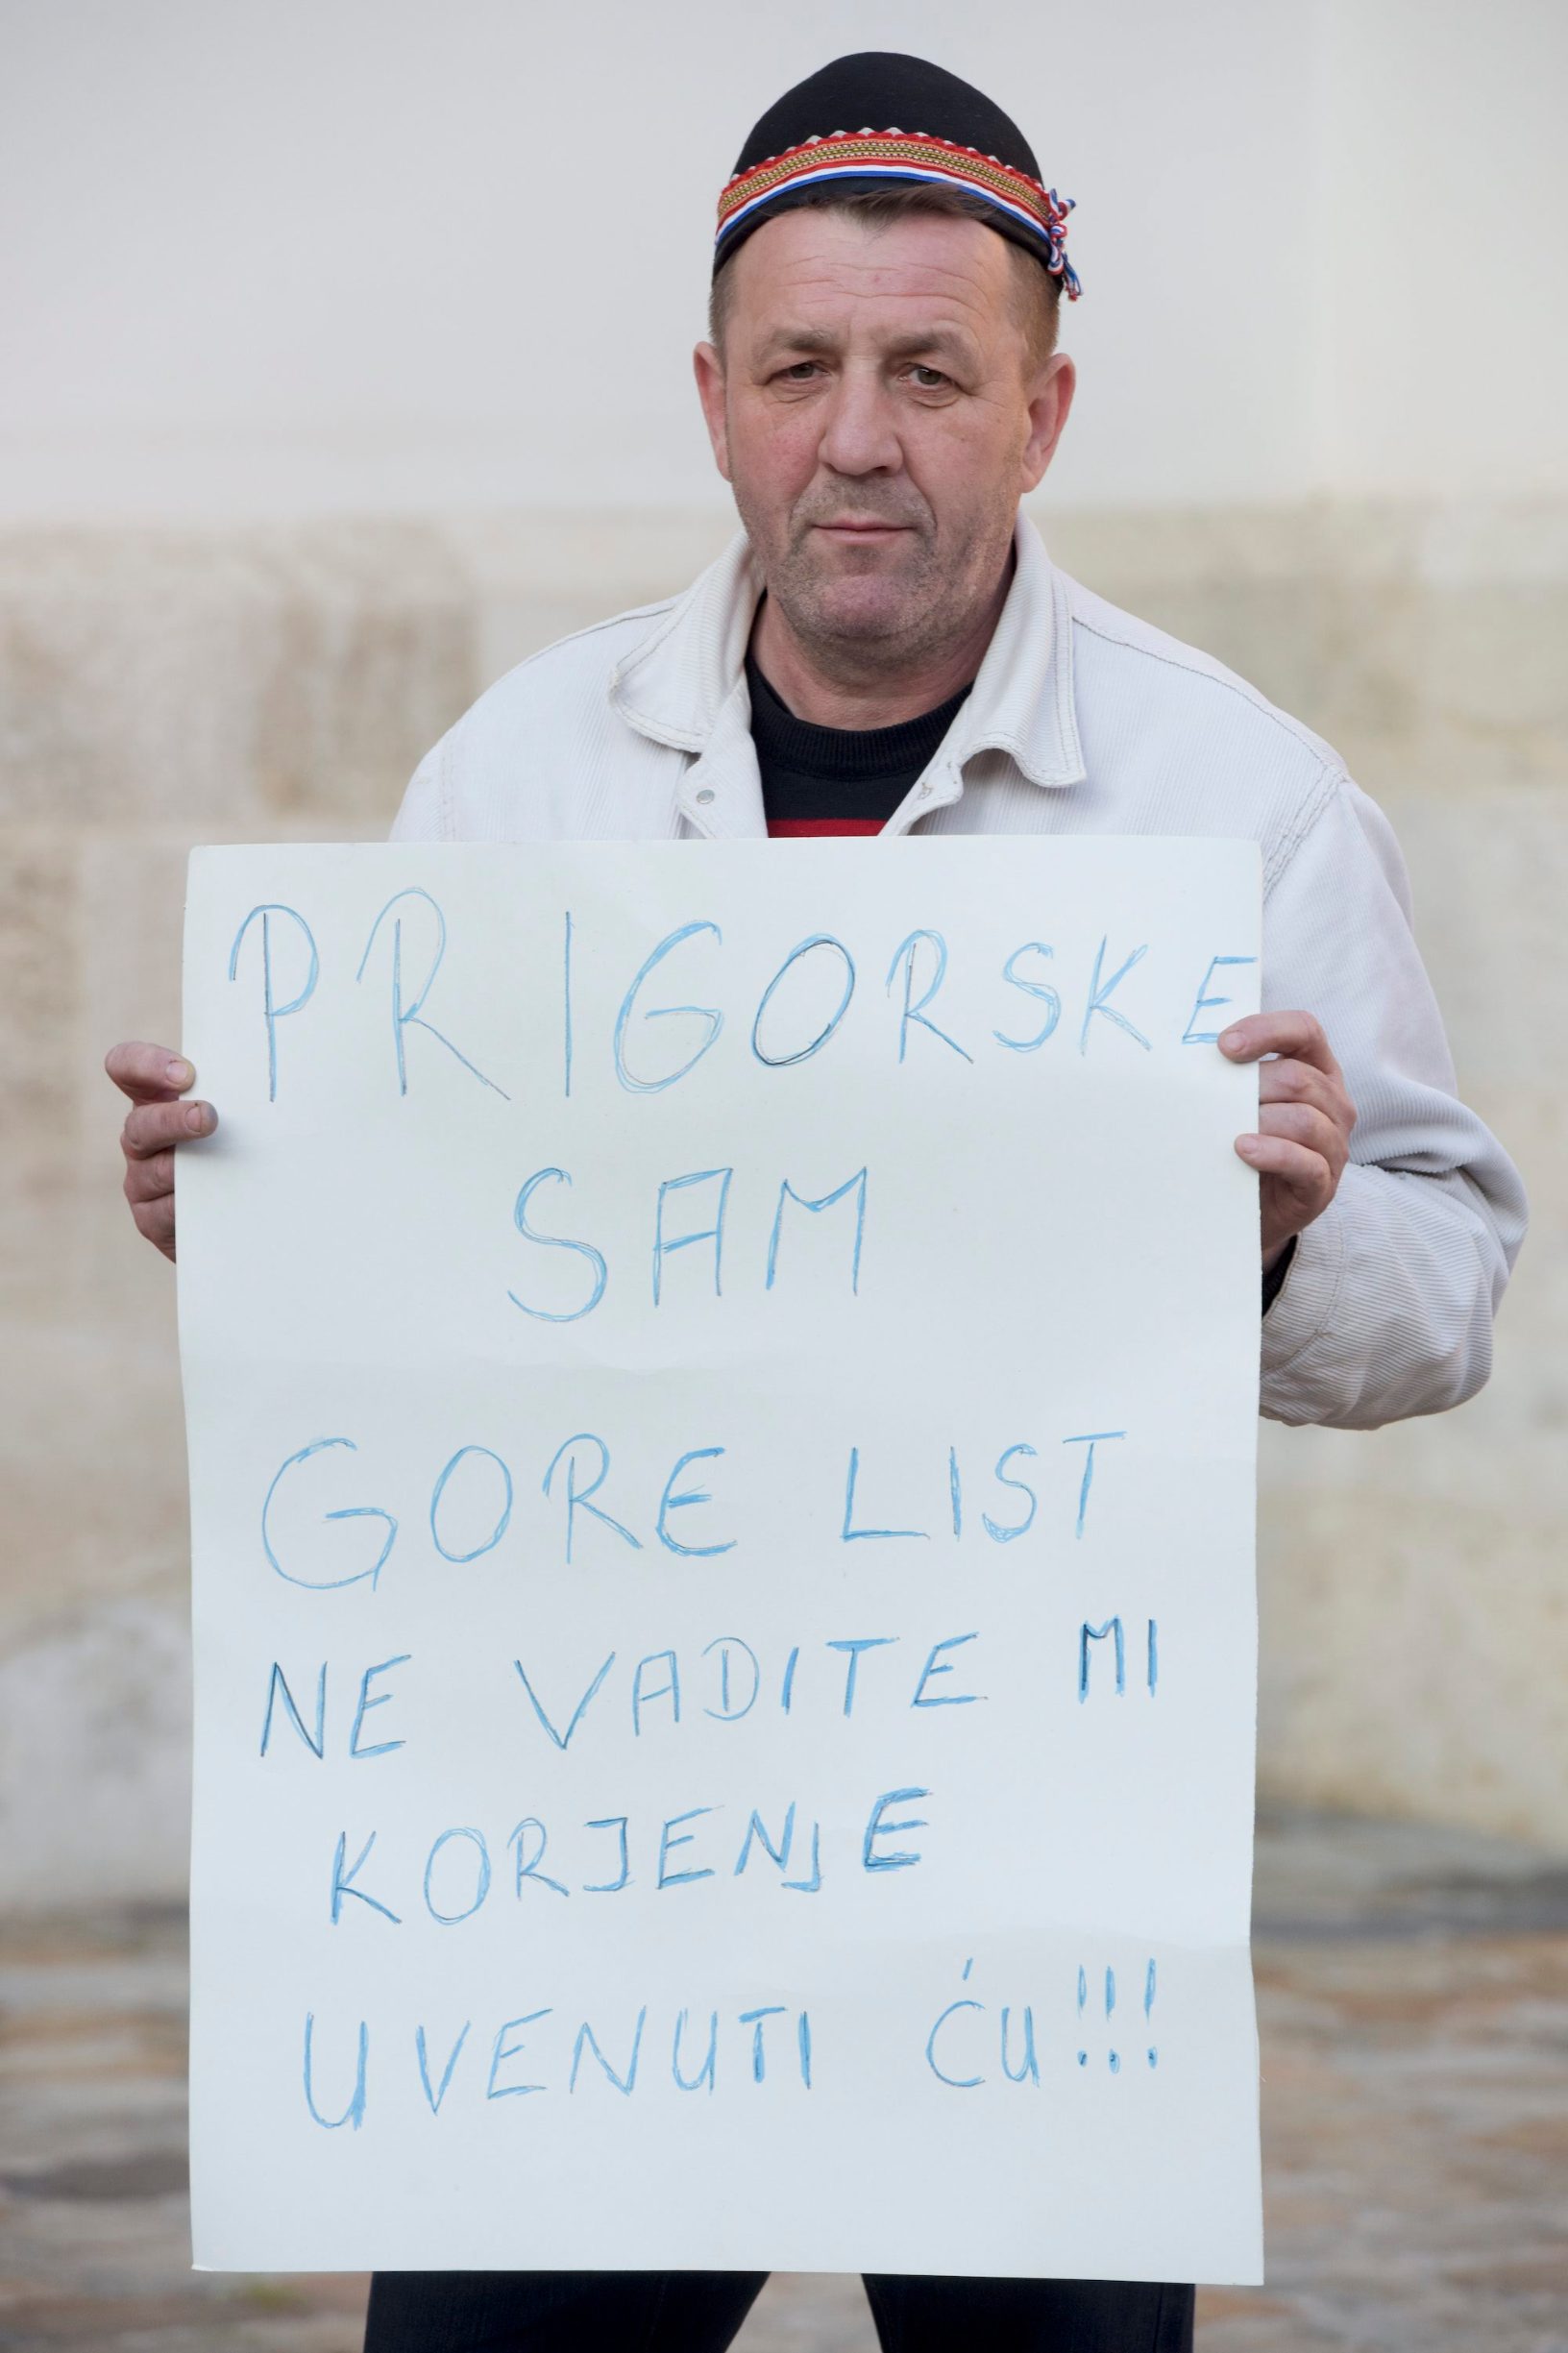 PRIGORSKE
SAM
GORE LIST
NE VADITE MI
KORJENJE
UVENUTI ĆU!!!